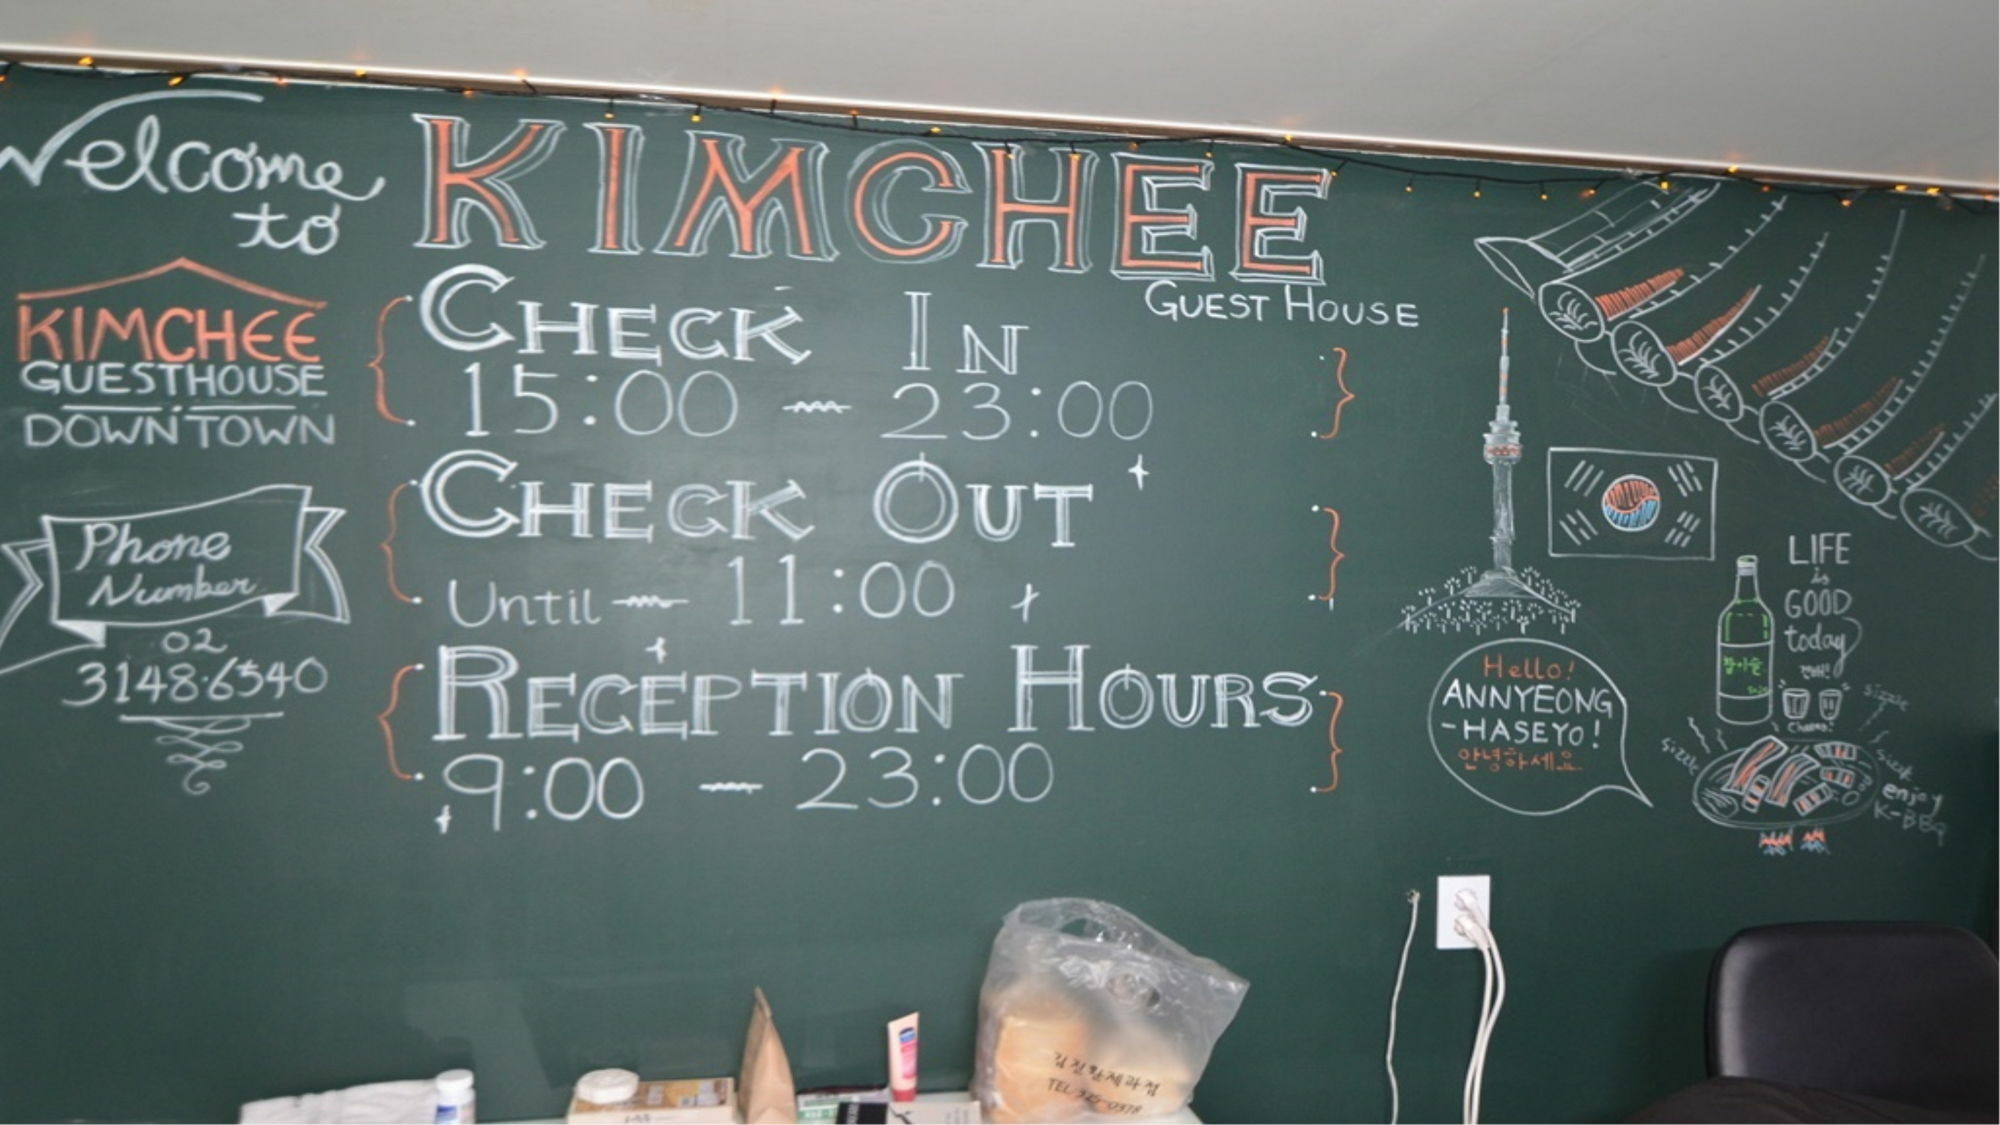 Welcome
to
KIMCHEE
GUEST HOUSE
KIMCHEE
GUESTHOUSE
DOWNTOWN
Phone
Number
02
3148·6540
CHECK IN
15:00 ~ 23:00
CHECK OUT
Until ~ 11:00
RECEPTION HOURS
9:00 ~ 23:00
Hello!
ANNYEONG
-HASEYO!
안녕하세요
LIFE
is
GOOD
today
참이슬
Cheers!
sizzle
sizzle
enjoy
K-BBQ
김진환제과점
TEL·325-0378